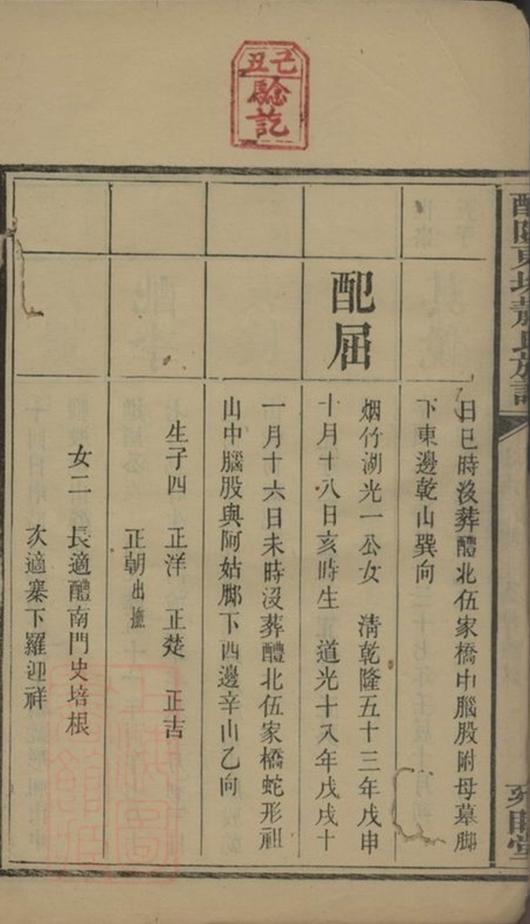 己丑
驗訖
醴陵東坑蕭氏族譜
日巳時沒葬醴北伍家橋中腦股附母墓脚
下東邊乾山巽向
配屈
烟竹湖光一公女　清乾隆五十三年戊申
十月十八日亥時生　道光十八年戊戌十
一月十六日未時沒葬醴北伍家橋蛇形祖
山中腦股與阿姑脚下西邊辛山乙向
生子四　正洋　正楚　正吉
正朝出撫
女二　長適醴南門史培根
次適寨下羅迎祥